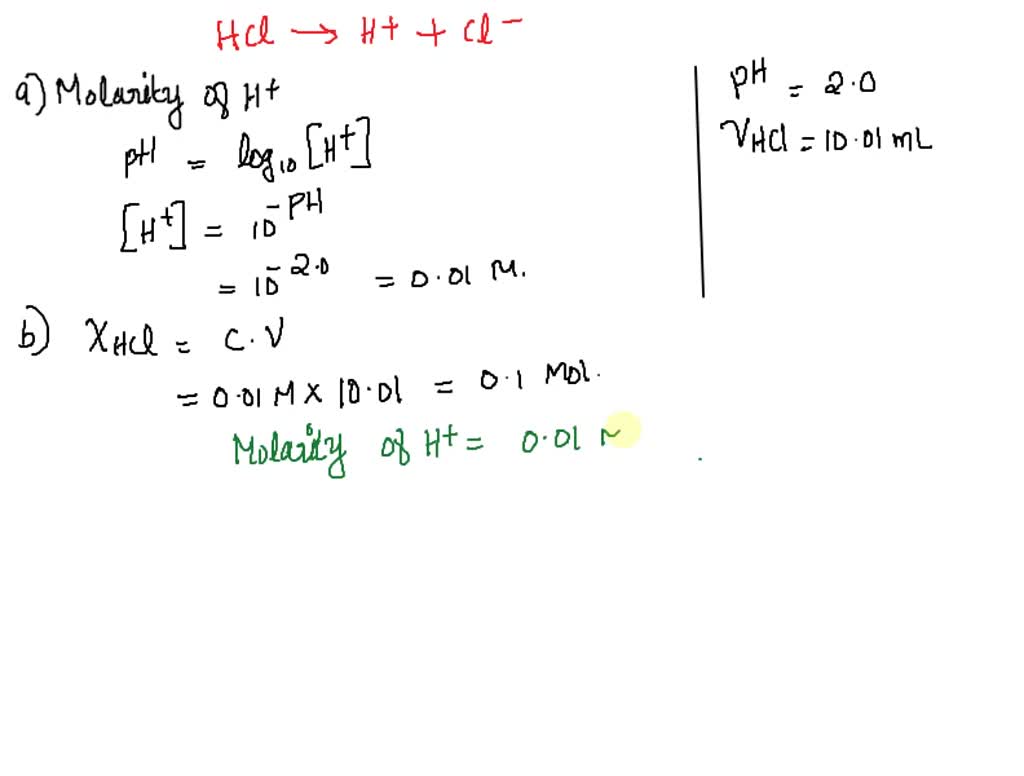 HCl → H+ + Cl−
a) Molarity of H+
pH = log10 [H+]
[H+] = 10^-PH
= 10^-2.0 = 0.01 M.
b) XHCl = C.V
= 0.01 M X 10.01 = 0.1 Mol.
Molarity of H+ = 0.01 M
pH = 2.0
VHCl = 10.01 mL